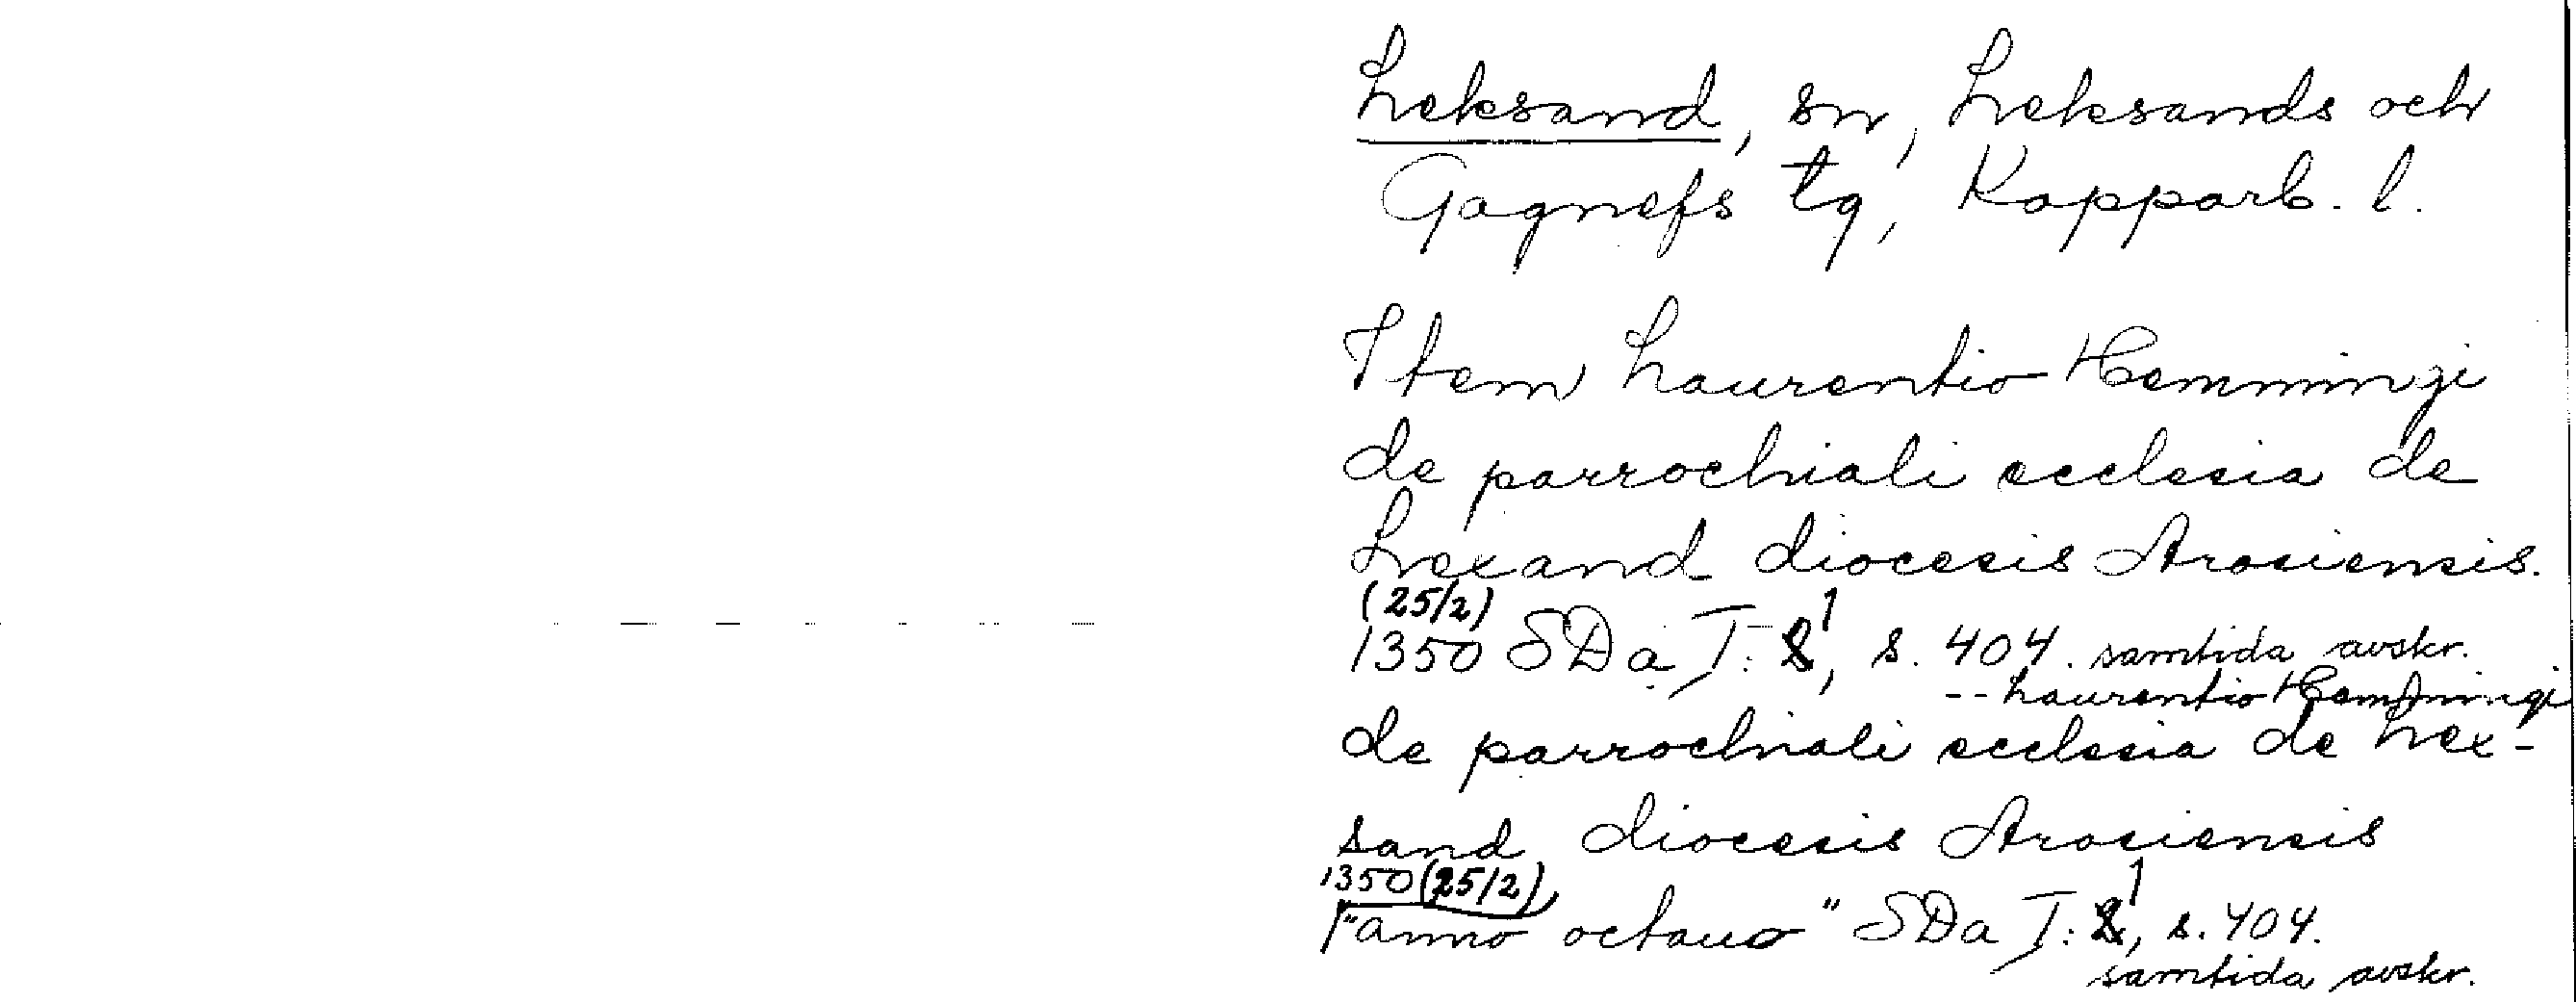 Leksand, sn, Leksands och
Gagnefs tg, Kopparb. l.
Item Laurentio Hemmingi
de parrochiali ecclesia de
Lexand diocesis Arosiensis.
(25/2)
1350 SDa I:1, s. 404. samtida avskr.
-- Laurentio Hemmingi
de parrochiali ecclesia de Lex-
sand diocesis Arosiensis
1350 (25/2)
"anno octauo" SDa I:1, s. 404.
samtida avskr.